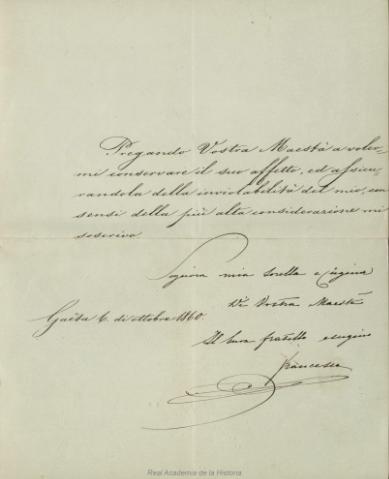 Pregando Vostra Maestà a voler-
mi conservare il suo affetto, ed assicu-
randola della inviolabilità del mio, con
sensi della più alta considerazione mi
soscrivo
Signora mia sorella e Cugina
Di Vostra Maestà
Gaeta 6 di ottobre 1860.
Il buon fratello e cugino
Francesco
Real Academia de la Historia